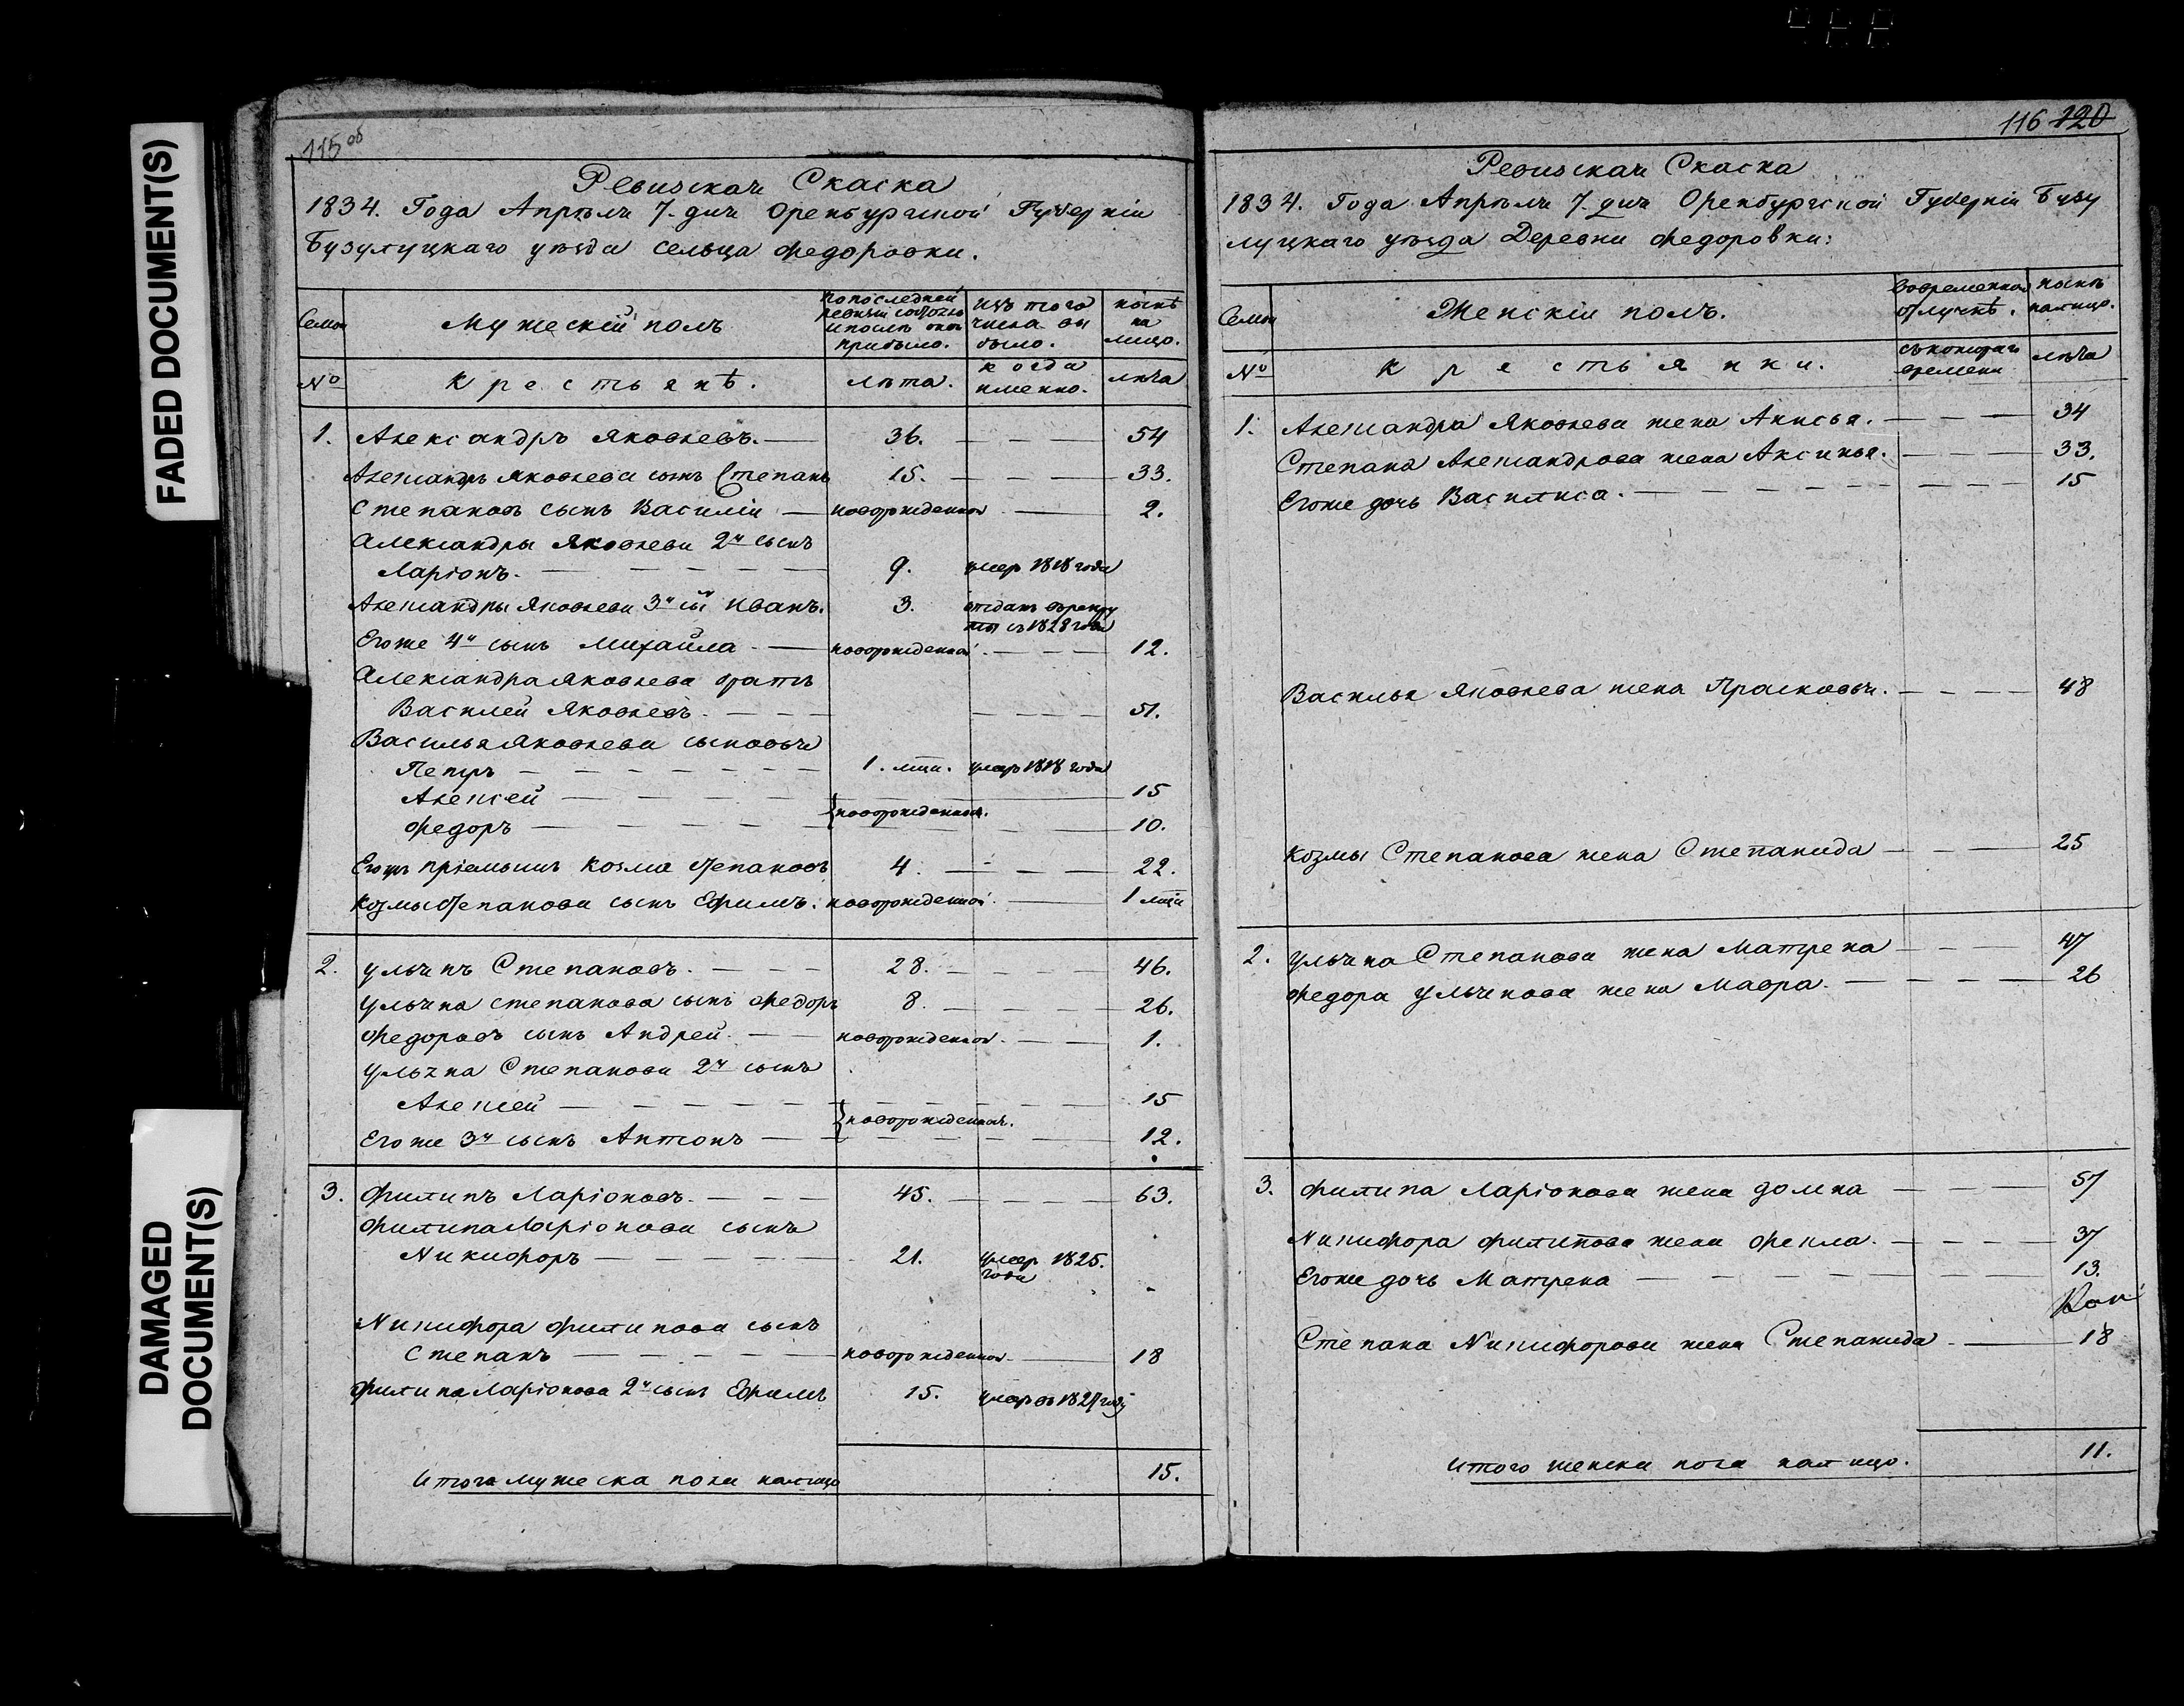 FADED DOCUMENT(S)
DAMAGED
DOCUMENT(S)
115 об
Ревизская Скаска
1834. Года Апрѣля 7. дня Оренбургской Губерніи
Бузулуцкаго уѣзда сельца Федоровки.
Семьи
Мужескій полъ
по последней
ревизіи состояло
и после оной
прибыло.
изъ того
числа вы
было.
нынѣ
на
лицо.
№
Крестьянѣ.
лѣта.
когда
именно.
лѣта
1. Александръ Яковлевъ. 36. 54
Александръ Яковлева сынъ Степанъ 15. 33.
Степановъ сынъ Василіи новорожденной 2.
Александры Яковлева 2й сынъ
Ларіонъ. 9. умер 1818 года
Александры Яковлева 3й сы Иванъ. 3. отданъ в рекру
ты съ 1828 года
Егоже 4й сынъ Михайла новорожденной 12.
Александра Яковлева братъ
Василей Яковлевъ 51.
Василья Яковлева сыновья
Петръ 1. мца. умеръ 1818 года
Алексей 15
}новорожденныя.
Федоръ 10.
Егожъ пріемышъ Козма Степановъ 4. 22.
Козмы Степанова сынъ Ефимъ. новорожденной 1 мца
2. Ульянъ Степановъ. 28. 46.
Ульяна Степанова сынъ Федоръ 8. 26.
Федоровъ сынъ Андрей новорожденной 1.
Ульяна Степанова 2й сынъ
Алексей 15
}новорожденныя.
Егоже 3й сынъ Антонъ 12.
3. Филипъ Ларіоновъ. 45. 63.
Филипа Ларіонова сынъ
Никифоръ 21. умер 1825.
года
Никифора Филипова сынъ
Степанъ новорожденной 18
Филипа Ларіонова 2й сынъ Ефимъ 15. умеръ въ 1827 году
Итого мужеска пола налицо 15.
116 120
Ревизская Скаска
1834. Года Апрѣля 7. дня Оренбургской Губерніи Бузу
луцкаго уѣзда Деревни Федоровки:
Семьи
Женскіи полъ.
во временной
отлучкѣ.
нынѣ
налицо.
№
Крестьянки.
съ котораго
времени
лѣта
1. Александра Яковлева жена Анисья. 34
Степана Александрова жена Аксинья. 33.
Егоже дочь Василиса. 15
Василья Яковлева жена Прасковья. 48
Козмы Степанова жена Степанида 25
2. Ульяна Степанова жена Матрена 47
Федора Ульянова жена Мавра. 26
3. Филипа Ларіонова жена Домна 57
Никифора Филипова жена Фекла. 37
Егоже дочь Матрена 13.
Степана Никифорова жена Степанида 18
Итого женска пола налицо. 11.